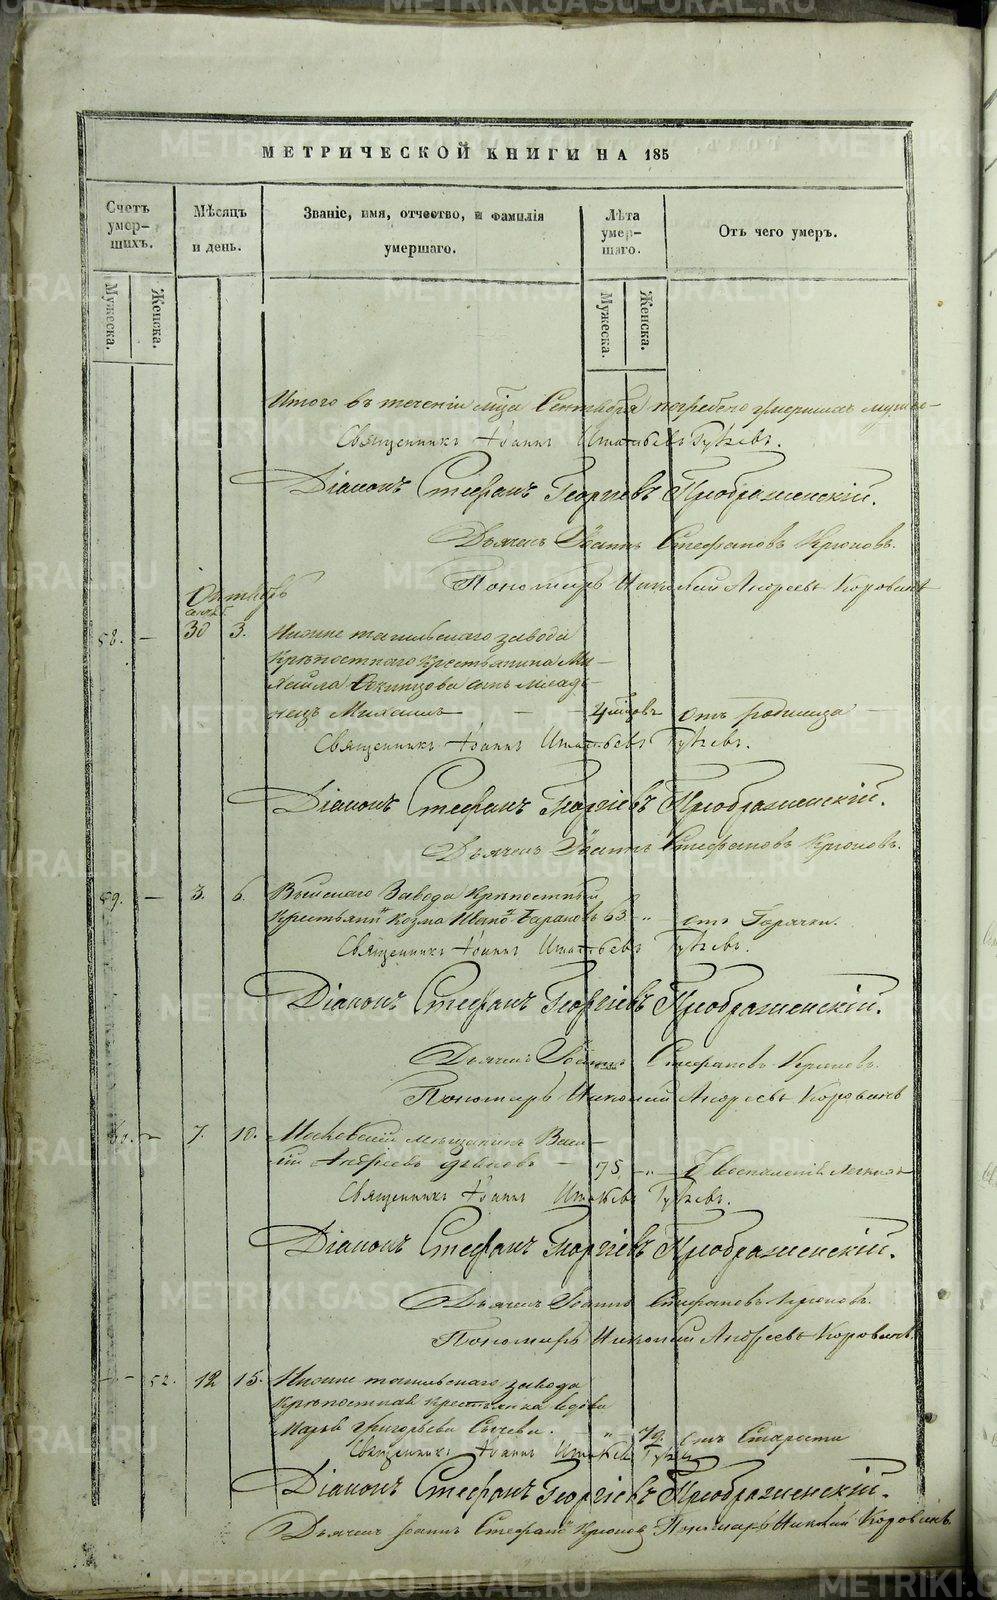 МЕТРИЧЕСКОЙ КНИГИ НА 185
Счетъ умер-шихъ.
Мѣсяцъ и день.
Званіе, имя, отчество, и фамилія умершаго.
Лѣта умер-шаго.
Отъ чего умеръ.
Мужеска.
Женска.
Мужеска.
Женска.
Итого въ теченіи мца Сентября погребено умершихъ
Священникъ Іоаннъ
Діаконъ Стефанъ Георгіевъ Преображенскій.
Дьячекъ Іоаннъ Стефановъ Крюковъ.
Пономарь Николай Андреевъ Коровинъ
Октябрь
58. — 30 3. Нижне тагильскаго завода
Крѣпостнаго крестьянина Ми-
хайла сынъ млад-
нецъ Михаилъ — 4 отъ родимца —
Священникъ Іоаннъ
Діаконъ Стефанъ Георгіевъ Преображенскій.
Дьячекъ Іоаннъ Стефановъ Крюковъ.
59. — 3. 6. Выйскаго Завода Крѣпостный
Крестьянинъ Козма Барановъ 63 „ отъ Горячки.
Священникъ Іоаннъ
Діаконъ Стефанъ Георгіевъ Преображенскій.
Дьячекъ Іоаннъ Стефановъ Крюковъ.
Пономарь Николай Андреевъ Коровинъ
60. — 7. 10. Московскій мѣщанинъ Васи-
лій Андреевъ — 75 „
Священникъ Іоаннъ
Діаконъ Стефанъ Георгіевъ Преображенскій.
Дьячекъ Іоаннъ Стефановъ Крюковъ.
Пономарь Николай Андреевъ Коровинъ
— 52. 12 15. Нижне тагильскаго завода
Крѣпостная крестьянка вдова
Марья Григорьева „ 79. отъ Старости
Священникъ Іоаннъ
Діаконъ Стефанъ Георгіевъ Преображенскій.
Дьячекъ Іоаннъ Крюковъ Пономарь Николай Коровинъ
METRIKI.GASO-URAL.RU